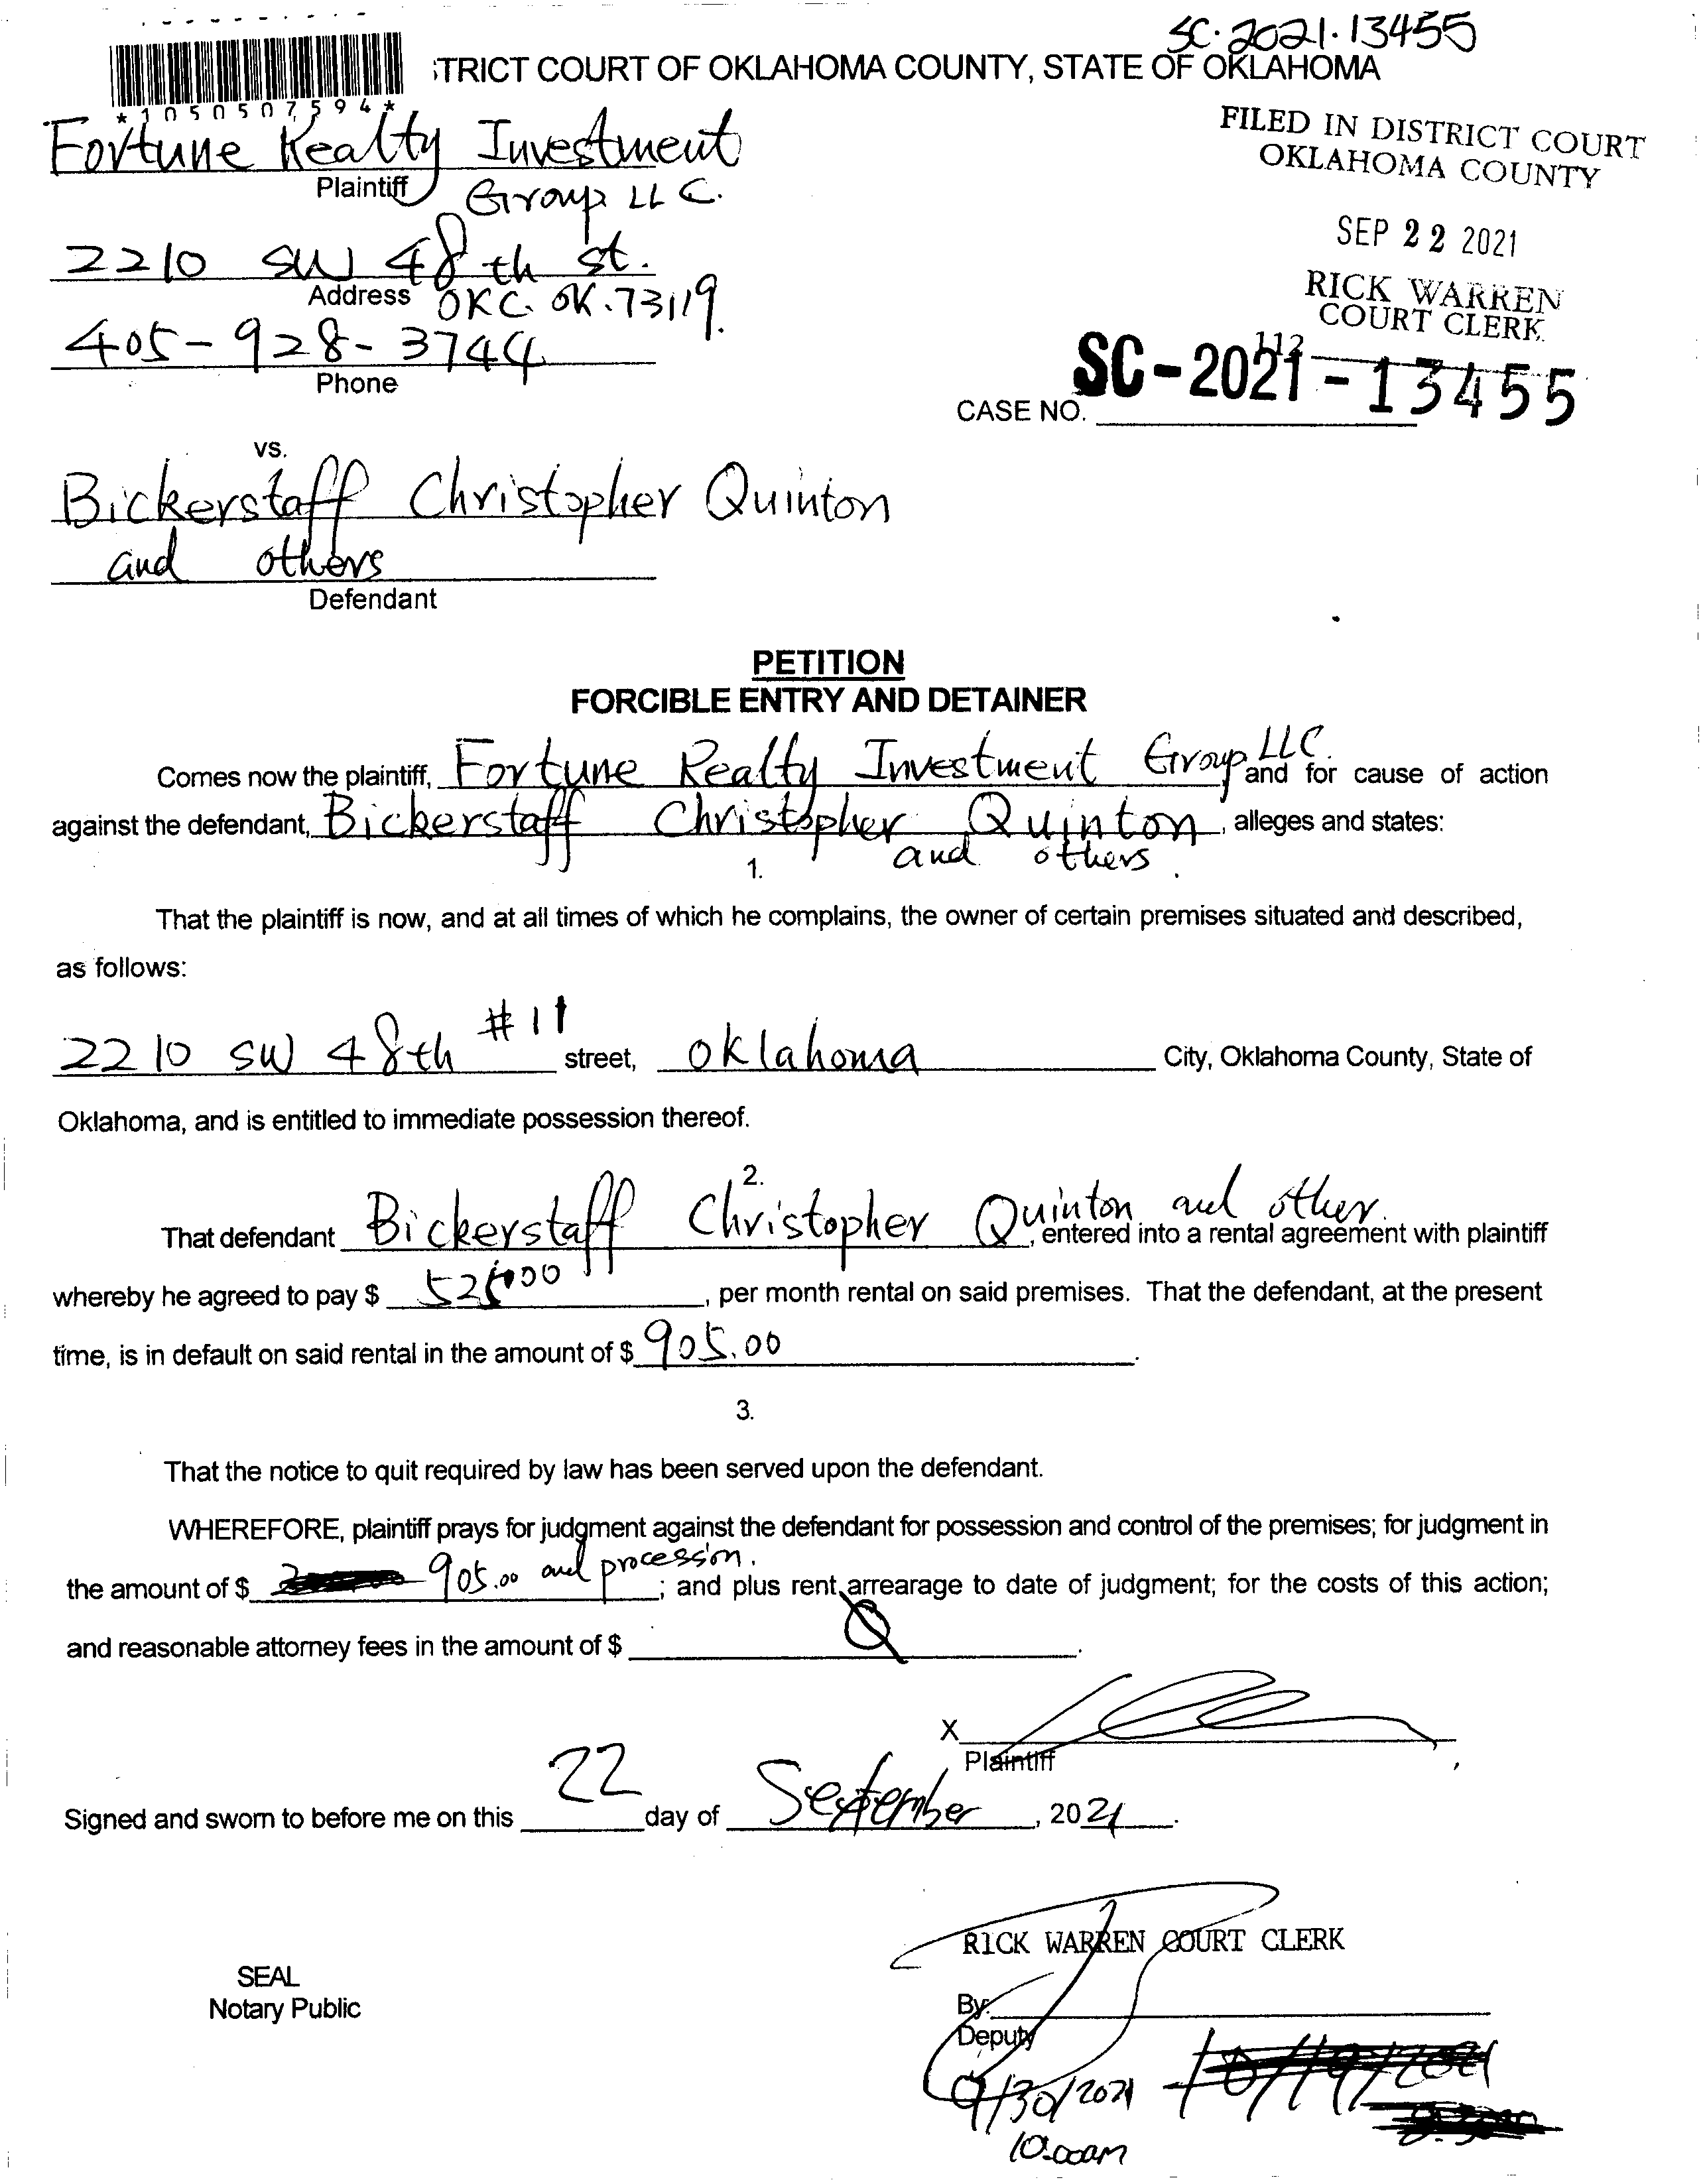 SC·2021·13455
TRICT COURT OF OKLAHOMA COUNTY, STATE OF OKLAHOMA
*1050507594*
Fortune Realty Investment
Plaintiff
Group LLC.
FILED IN DISTRICT COURT
OKLAHOMA COUNTY
SEP 22 2021
RICK WARREN
COURT CLERK
112
2210 SW 48th st.
Address
OKC. OK.73119.
405-928-3744
Phone
CASE NO. SC-2021-13455
vs.
Bickerstaff Christopher Quinton
and others
Defendant
PETITION
FORCIBLE ENTRY AND DETAINER
Comes now the plaintiff, Fortune Realty Investment Group LLC. and for cause of action
against the defendant, Bickerstaff Christopher Quinton, alleges and states:
and others.
1.
That the plaintiff is now, and at all times of which he complains, the owner of certain premises situated and described,
as follows:
2210 SW 48th #11 street, oklahoma City, Oklahoma County, State of
Oklahoma, and is entitled to immediate possession thereof.
2.
That defendant Bickerstaff Christopher Quinton and other., entered into a rental agreement with plaintiff
whereby he agreed to pay $ , per month rental on said premises. That the defendant, at the present
time, is in default on said rental in the amount of $ 905.00.
3.
That the notice to quit required by law has been served upon the defendant.
WHEREFORE, plaintiff prays for judgment against the defendant for possession and control of the premises; for judgment in
the amount of $ 905.00 and procession.; and plus rent arrearage to date of judgment; for the costs of this action;
and reasonable attorney fees in the amount of $
X
Plaintiff
Signed and sworn to before me on this 22 day of September, 2021.
RICK WARREN COURT CLERK
SEAL
Notary Public
By:
Deputy
9/30/2021
10:00am